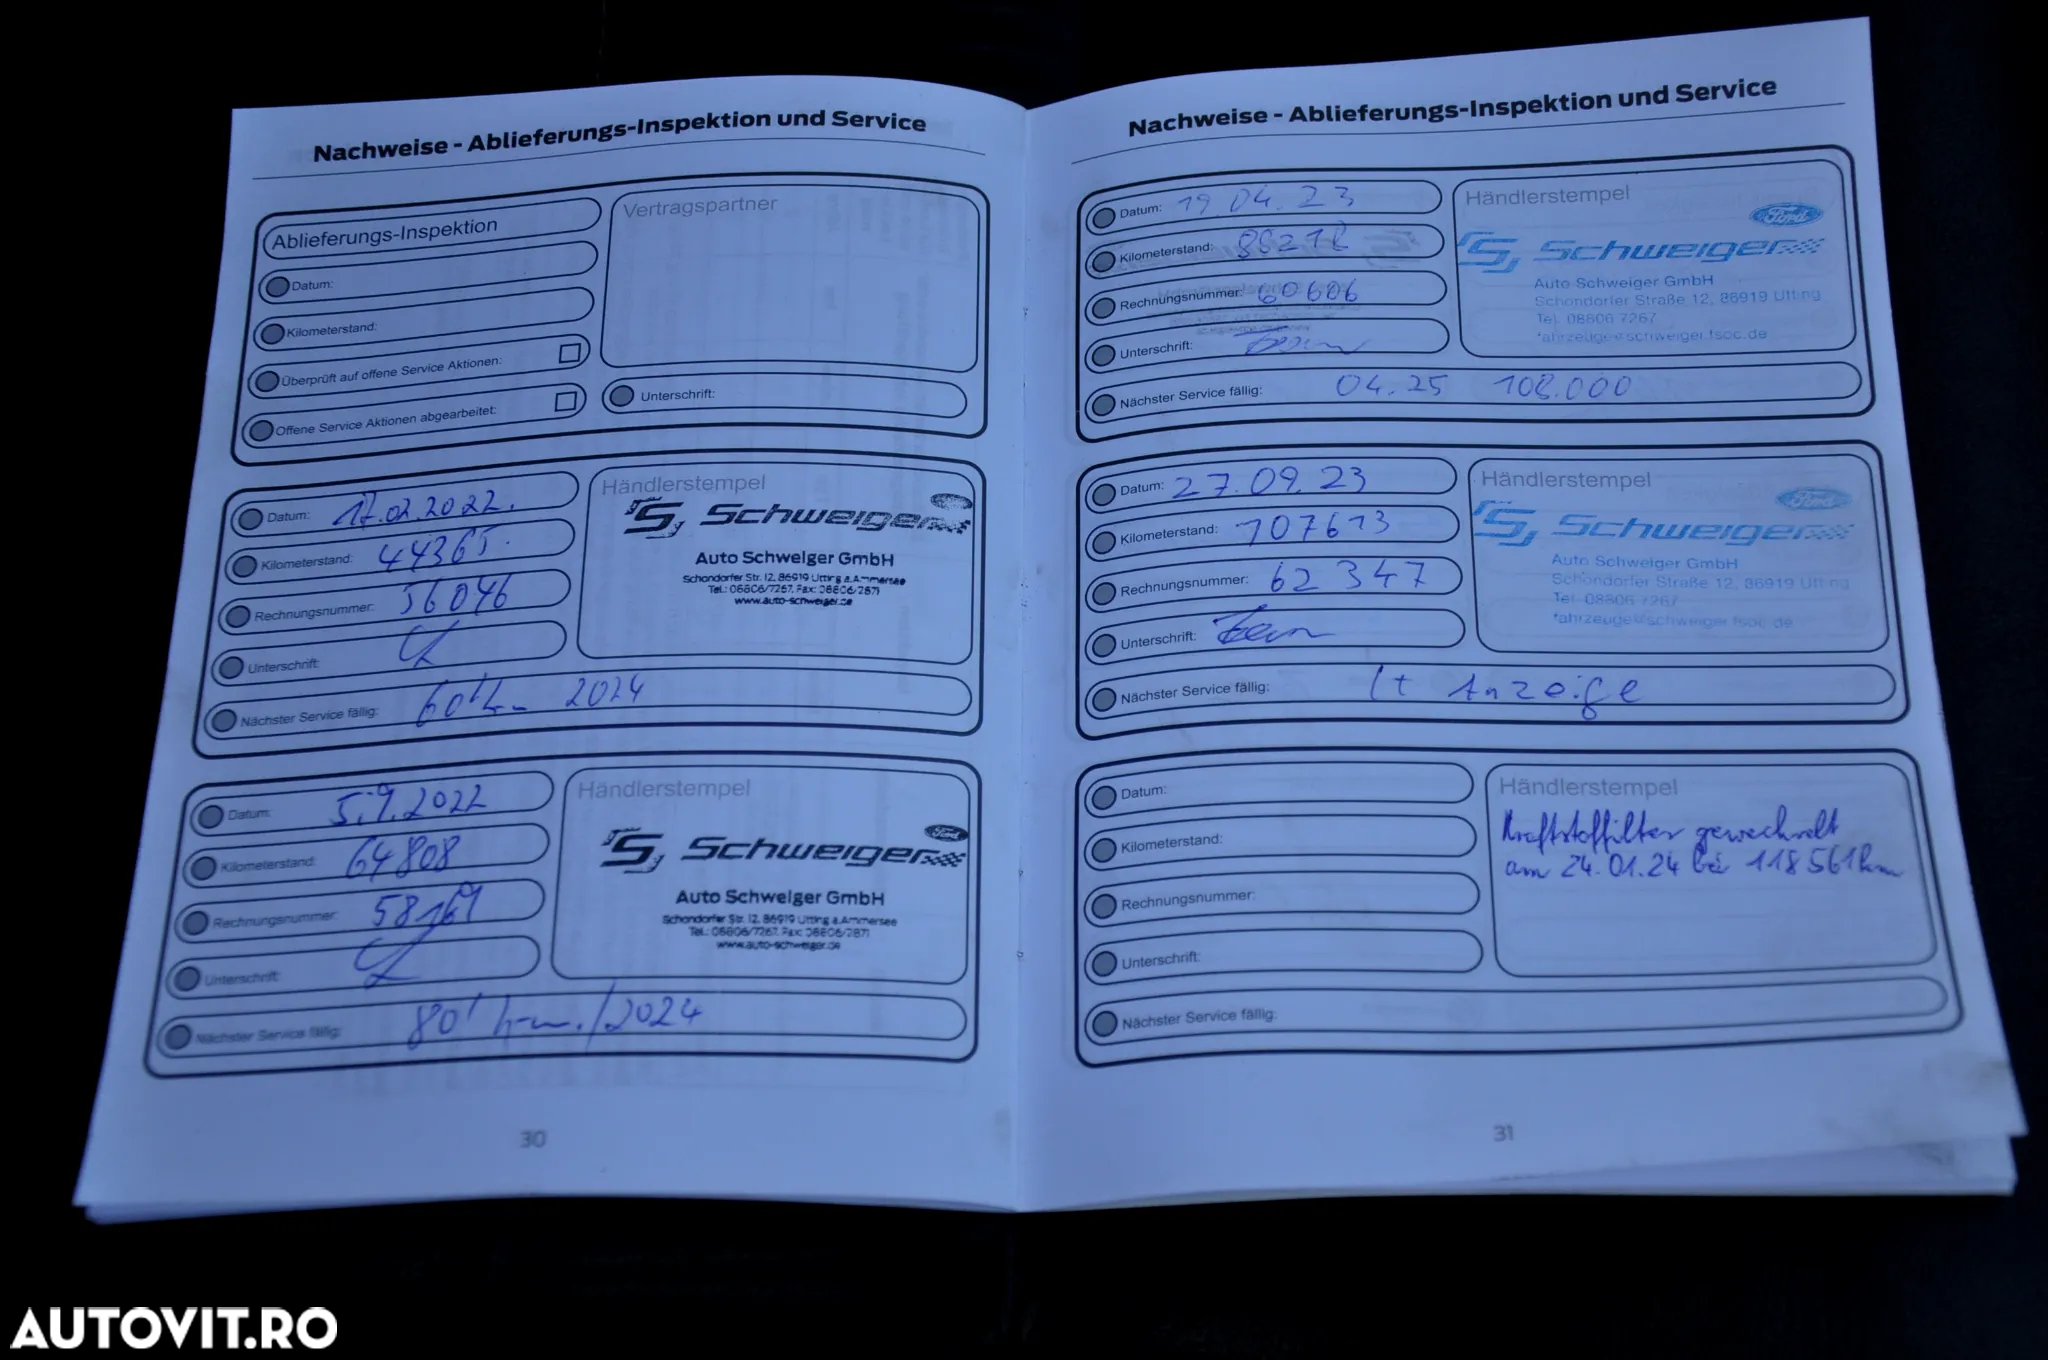 Nachweise - Ablieferungs-Inspektion und Service
Ablieferungs-Inspektion
Vertragspartner
Datum:
Kilometerstand:
Überprüft auf offene Service Aktionen:
Offene Service Aktionen abgearbeitet:
Unterschrift:
Datum: 17.02.2022.
Kilometerstand: 44365.
Rechnungsnummer: 56046
Unterschrift:
Nächster Service fällig: 60' km 2024
Händlerstempel
Ford
Schweiger
Auto Schweiger GmbH
Schondorfer Str. 12, 86919 Utting a.Ammersee
Tel.: 08806/7267, Fax: 08806/2871
www.auto-schweiger.de
Datum: 5.9.2022
Kilometerstand: 64808
Rechnungsnummer: 58169
Unterschrift:
Nächster Service fällig: 80' km./2024
Händlerstempel
Ford
Schweiger
Auto Schweiger GmbH
Schondorfer Str. 12, 86919 Utting a.Ammersee
Tel.: 08806/7267, Fax: 08806/2871
www.auto-schweiger.de
30
Nachweise - Ablieferungs-Inspektion und Service
Datum: 19.04.23
Kilometerstand:
Rechnungsnummer: 60606
Unterschrift:
Nächster Service fällig: 04.25 108.000
Händlerstempel
Ford
Schweiger
Auto Schweiger GmbH
Schondorfer Straße 12, 86919 Utting
Tel. 08806 7267
fahrzeuge@schweiger.fsoc.de
Datum: 27.09.23
Kilometerstand: 107613
Rechnungsnummer: 62347
Unterschrift:
Nächster Service fällig: lt Anzeige
Händlerstempel
Ford
Schweiger
Auto Schweiger GmbH
Schondorfer Straße 12, 86919 Utting
Tel. 08806 7267
fahrzeuge@schweiger.fsoc.de
Datum:
Kilometerstand:
Rechnungsnummer:
Unterschrift:
Nächster Service fällig:
Händlerstempel
Kraftstoffilter gewechselt
am 24.01.24 bei 118561km
31
AUTOVIT.RO